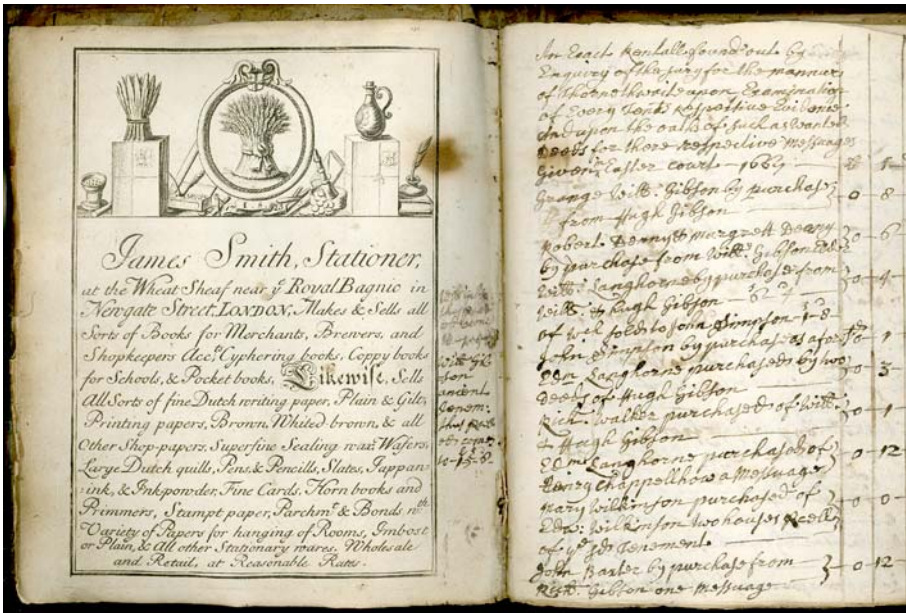 James Smith, Stationer,
at the Wheat Sheaf near yᵉ Royal Bagnio in
Newgate Street, LONDON, Makes & Sells all
Sorts of Books for Merchants, Brewers, and
Shopkeepers Accᵗˢ Cyphering books, Coppy books
for Schools, & Pocket books, Likewise, Sells
All Sorts of fine Dutch writing paper, Plain & Gilt,
Printing papers, Brown, Whited brown, & all
other Shop-papers, Superfine Sealing wax, Wafers,
Large Dutch quills, Pens, & Pencills, Slates, Jappan-
-ink, & Ink-powder, Fine Cards, Horn books and
Primmers, Stampt paper, Parchmᵗ & Bonds wᵗʰ
Variety of Papers for hanging of Rooms, Imbost
or Plain, & All other Stationary wares. Wholesale
and Retail, at Reasonable Rates.
son
ancient
Tenem:
An Exact Rentall found out by
Enquiry of the Jury for the mannor
of Thornethwaite upon Examination
of Every Tenᵗˢ Respective Evidence
And upon the oaths of such as wanted
Deeds for there respective Messuages
Given Easter Court 1669
Grange Willᵐ Gibson by purchase
from Hugh Gibson 0 - 8
Robert Denny & Margrett Denny
by purchase from Willᵐ Gibson 0 - 6
Willᵐ Langhorne by purchase from
Willᵐ & Hugh Gibson 0 - 4
of wch sold to John Simpson
John Simpson by purchase as afores 0 - 1
Edm Langhorne purchased by two
deeds of Hugh Gibson 0 - 3
Rich. Walker purchased of Willᵐ
& Hugh Gibson 0 - 1
Edm Langhorne purchased of
Henry Chappellhow a Messuage 0 - 12
Mary Wilkinson purchased of
Edw: Wilkinson two houses
of yᵉ sd Tenement 0 - 0
John Baxter by purchase from
Gibson one Messuage 0 - 12